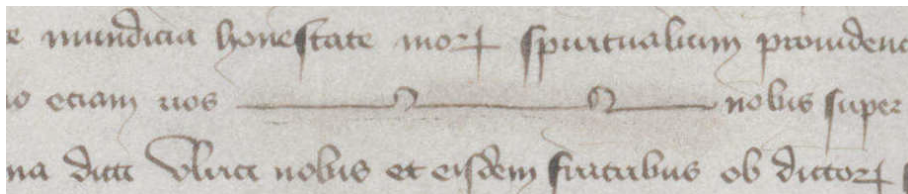 e mundicia honestate morꝝ spiritualium prouidenc
o eciam uos nobis super
na dicte vlrice nobis et eisdem fratribus ob dictorꝝ